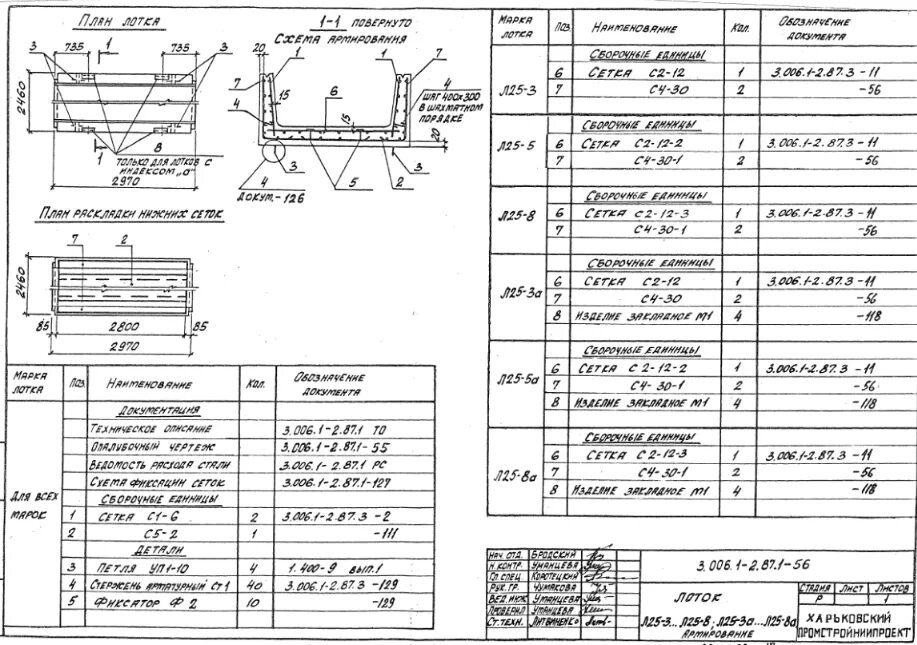 План лотка
3 735 1 735 3
2460
1 8
только для лотков с
индексом „а"
2970
1-1 повернуто
Схема армирования
20 1 1 7
7 6 4
шаг 400х300
в шахматном
порядке
4 15 15 20
3 5 2 3
4
докум.-126
План раскладки нижних сеток
7 2
2460
85 2800 85
2970
Марка лотка Поз. Наименование Кол. Обозначение документа
Для всех марок
Документация
Техническое описание 3.006.1-2.87.1 ТО
Опалубочный чертеж 3.006.1-2.87.1-55
Ведомость расхода стали 3.006.1-2.87.1 РС
Схема фиксации сеток 3.006.1-2.87.1-127
Сборочные единицы
1 Сетка С1-6 2 3.006.1-2.87.3-2
2 С5-2 1 -111
Детали
3 Петля УП1-10 4 1.400-9 вып.1
4 Стержень арматурный Ст1 40 3.006.1-2.87.3-129
5 Фиксатор Ф2 10 -129
Марка лотка Поз. Наименование Кол. Обозначение документа
Л25-3
Сборочные единицы
6 Сетка С2-12 1 3.006.1-2.87.3-11
7 С4-30 2 -56
Л25-5
Сборочные единицы
6 Сетка С2-12-2 1 3.006.1-2.87.3-11
7 С4-30-1 2 -56
Л25-8
Сборочные единицы
6 Сетка С2-12-3 1 3.006.1-2.87.3-11
7 С4-30-1 2 -56
Л25-3а
Сборочные единицы
6 Сетка С2-12 1 3.006.1-2.87.3-11
7 С4-30 2 -56
8 Изделие закладное М1 4 -118
Л25-5а
Сборочные единицы
6 Сетка С2-12-2 1 3.006.1-2.87.3-11
7 С4-30-1 2 -56
8 Изделие закладное М1 4 -118
Л25-8а
Сборочные единицы
6 Сетка С2-12-3 1 3.006.1-2.87.3-11
7 С4-30-1 2 -56
8 Изделие закладное М1 4 -118
Нач. отд. Бродский
Н.контр. Уманцева
Гл.спец. Коротецкий
Рук.гр. Чумакова
Вед.инж. Уманцева
Проверил Уманцева
Ст.техн. Литвиненко
3.006.1-2.87.1-56
Лоток
Л25-3...Л25-8; Л25-3а...Л25-8а
Армирование
Стадия Лист Листов
Р 1
Харьковский
Промстройниипроект